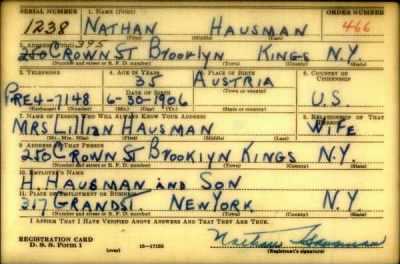 SERIAL NUMBER 1. NAME (Print) ORDER NUMBER
1238 NATHAN HAUSMAN 466
(First) (Middle) (Last)
2. ADDRESS (Print) 395
250 CROWN ST BROOKLYN KINGS N.Y.
(Number and street or R. F. D. number) (Town) (County) (State)
3. TELEPHONE 4. AGE IN YEARS 5. PLACE OF BIRTH 6. COUNTRY OF CITIZENSHIP
35 AUSTRIA
DATE OF BIRTH (Town or county)
PRE4-7148 6-30-1906 U.S.
(Exchange) (No.) (Mo.) (Day) (Yr.) (State or country)
7. NAME OF PERSON WHO WILL ALWAYS KNOW YOUR ADDRESS 8. RELATIONSHIP OF THAT PERSON
MRS LILLIAN HAUSMAN WIFE
(Mr., Mrs., Miss) (First) (Middle) (Last)
9. ADDRESS OF THAT PERSON
250 CROWN ST BROOKLYN KINGS N.Y.
(Number and street or R. F. D. number) (Town) (County) (State)
10. EMPLOYER'S NAME
H. HAUSMAN AND SON
11. PLACE OF EMPLOYMENT OR BUSINESS
317 GRAND ST. NEW YORK N.Y.
(Number and street or R. F. D. number) (Town) (County) (State)
I AFFIRM THAT I HAVE VERIFIED ABOVE ANSWERS AND THAT THEY ARE TRUE.
REGISTRATION CARD
D. S. S. FORM 1 (over) 16-17105 Nathan Hausman
(Registrant's signature)